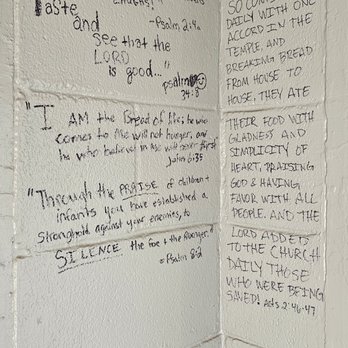 Taste
and
see that the
LORD
is good..."
psalm
34:8
-Psalm 2:4a
"I AM the Bread of life; he who
comes to Me will not hunger, and
he who believes in Me will never thirst
John 6:35
"Through the PRAISE of children +
infants you have established a
stronghold against your enemies, to
SILENCE the foe + the avenger."
- Psalm 8:2
SO CONTINUING
DAILY WITH ONE
ACCORD IN THE
TEMPLE, AND
BREAKING BREAD
FROM HOUSE TO
HOUSE, THEY ATE
THEIR FOOD WITH
GLADNESS AND
SIMPLICITY OF
HEART, PRAISING
GOD & HAVING
FAVOR WITH ALL
PEOPLE. AND THE
LORD ADDED
TO THE CHURCH
DAILY THOSE
WHO WERE BEING
SAVED! Acts 2:46-47